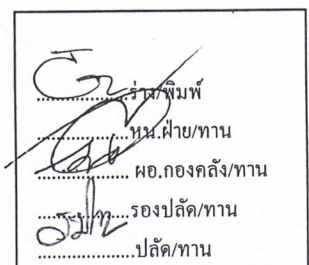 ....................ร่าง/พิมพ์
....................หน.ฝ่าย/ทาน
.................... ผอ.กองคลัง/ทาน
....................รองปลัด/ทาน
....................ปลัด/ทาน